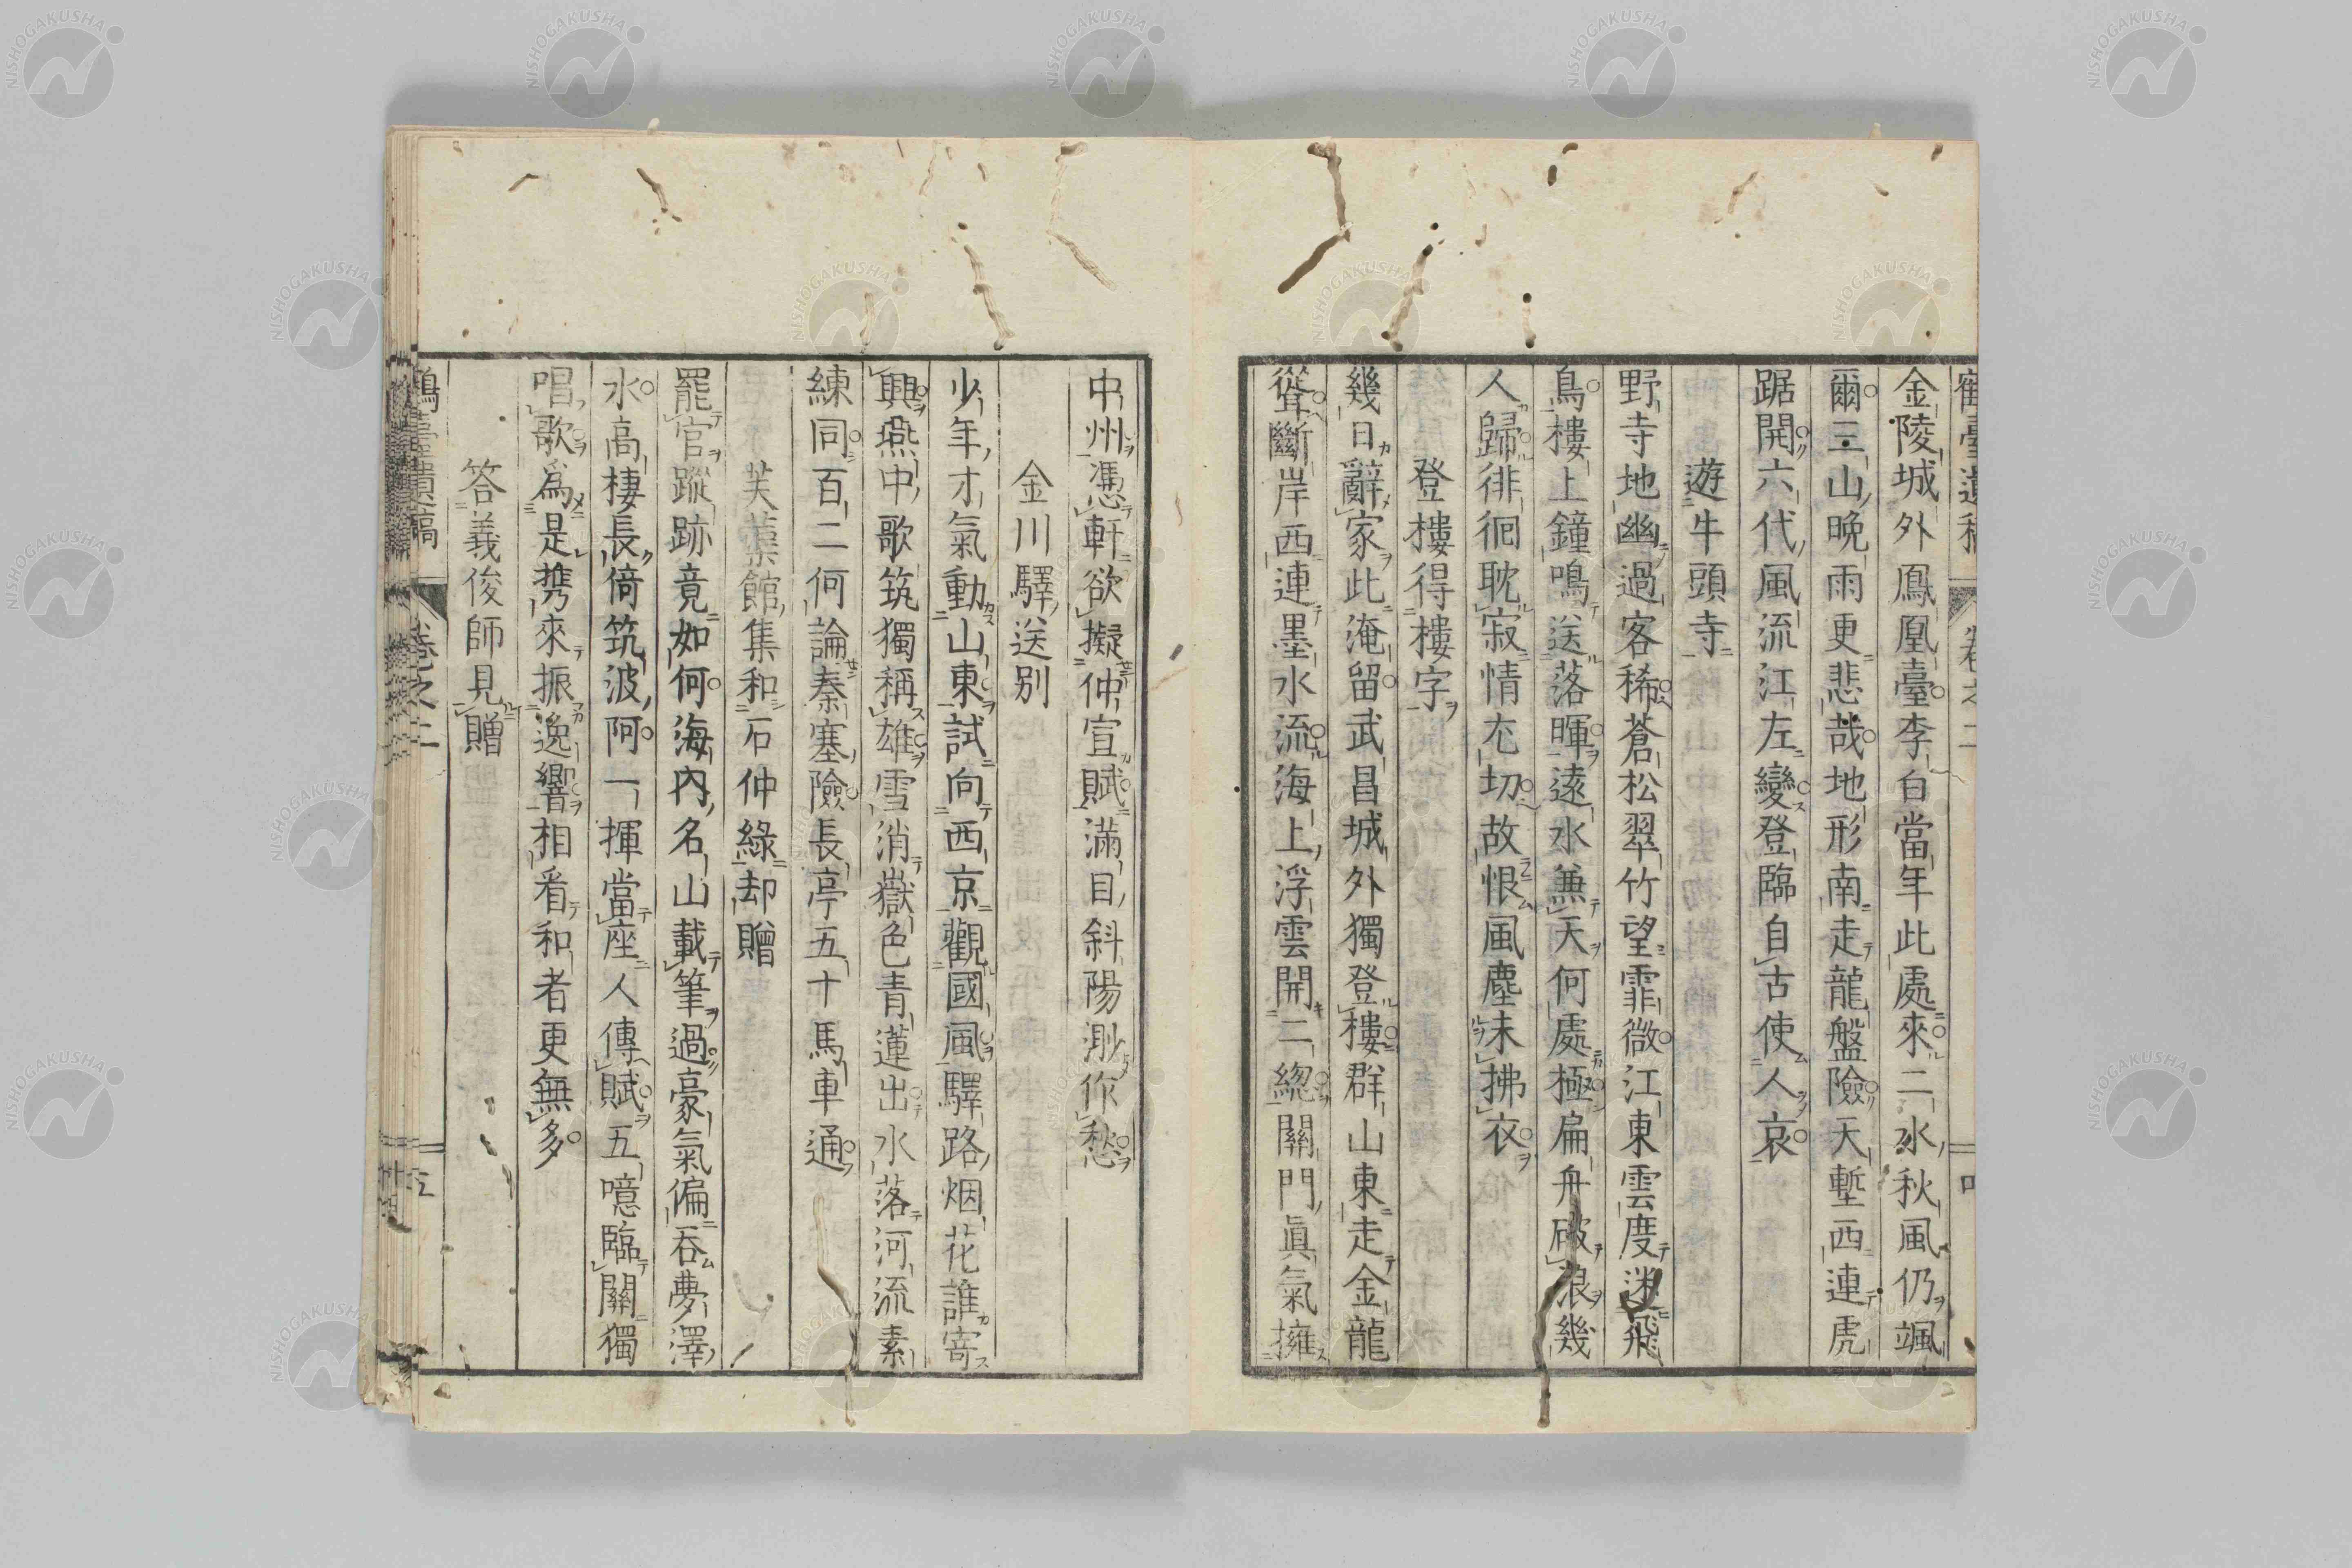 金陵城外鳳凰臺李白當年此處來二水秋風仍颯
爾三山晚雨更悲哉地形南走龍盤險天塹西連虎
踞開六代風流江左變登臨自古使人哀
遊牛頭寺
野寺地幽過客稀蒼松翠竹望霏微江東雲度迷飛
鳥樓上鐘鳴送落暉遠水兼天何處極扁舟破浪幾
人歸徘徊耽寂情尤切故恨風塵未拂衣
登樓得樓字
幾日辭家此淹留武昌城外獨登樓群山東走金龍
聳斷岸西連墨水流海上浮雲開二總關門眞氣擁
中州憑軒欲擬仲宣賦滿目斜陽渺作愁
金川驛送別
少年才氣動山東試向西京觀國風驛路烟花誰寄
興燕中歌筑獨稱雄雪消嶽色青蓮出水落河流素
練同百二何論秦塞險長亭五十馬車通
芙蕖館集和石仲綠却贈
罷官蹤跡竟如何海內名山載筆過豪氣偏吞夢澤
水高棲長倚筑波阿一揮當座人傳賦五噫臨關獨
唱歌爲是携來振逸響相看和者更無多
答義俊師見贈
鶴臺遺稿 卷之二
NISHOGAKUSHA